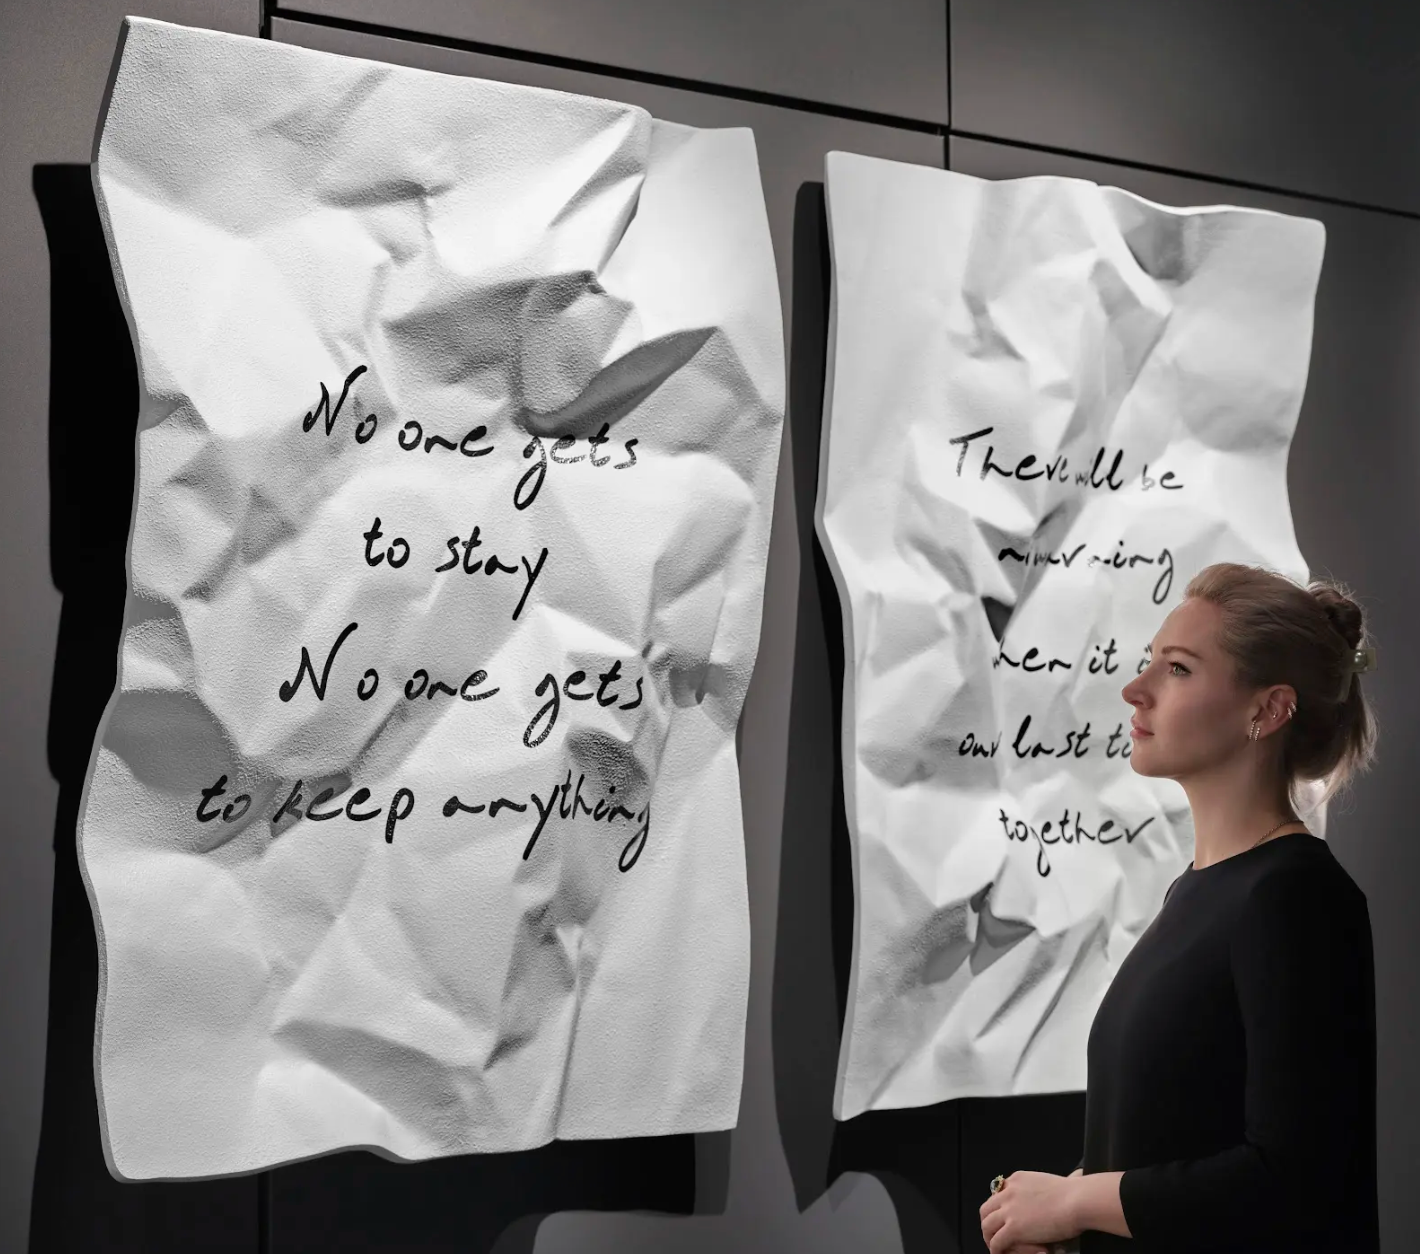 No one gets
to stay
No one gets
to keep anything
There will be
a morning
when it
our last
together